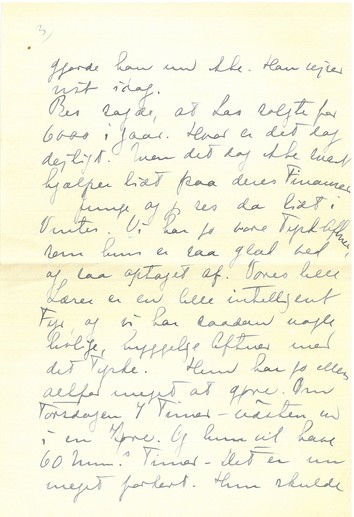 3)
gjorde han nu ikke. Han rejser
vist idag.
Bes sagde, at Las solgte for
6000 i Jaar. Hvor er det dog
dejligt. Men det dog ikke
hjælper lidt paa deres Finanser
junge og res da lidt i
Vinter. Vi har jo vore Tysk Aftner,
som hun er saa glad ved
og saa optaget af. Vores lille
Lærer er en lille intelligent
Fyr, og vi har saadan nogle
livlige, hyggelige Aftner med
det Tyske. Hun har jo ellers
meget at gøre. Om
Torsdagen 7 Timer - næsten ud
i en Køre. Og hun vil have
60 Timer - Det er nu
meget forkert. Hun skulde